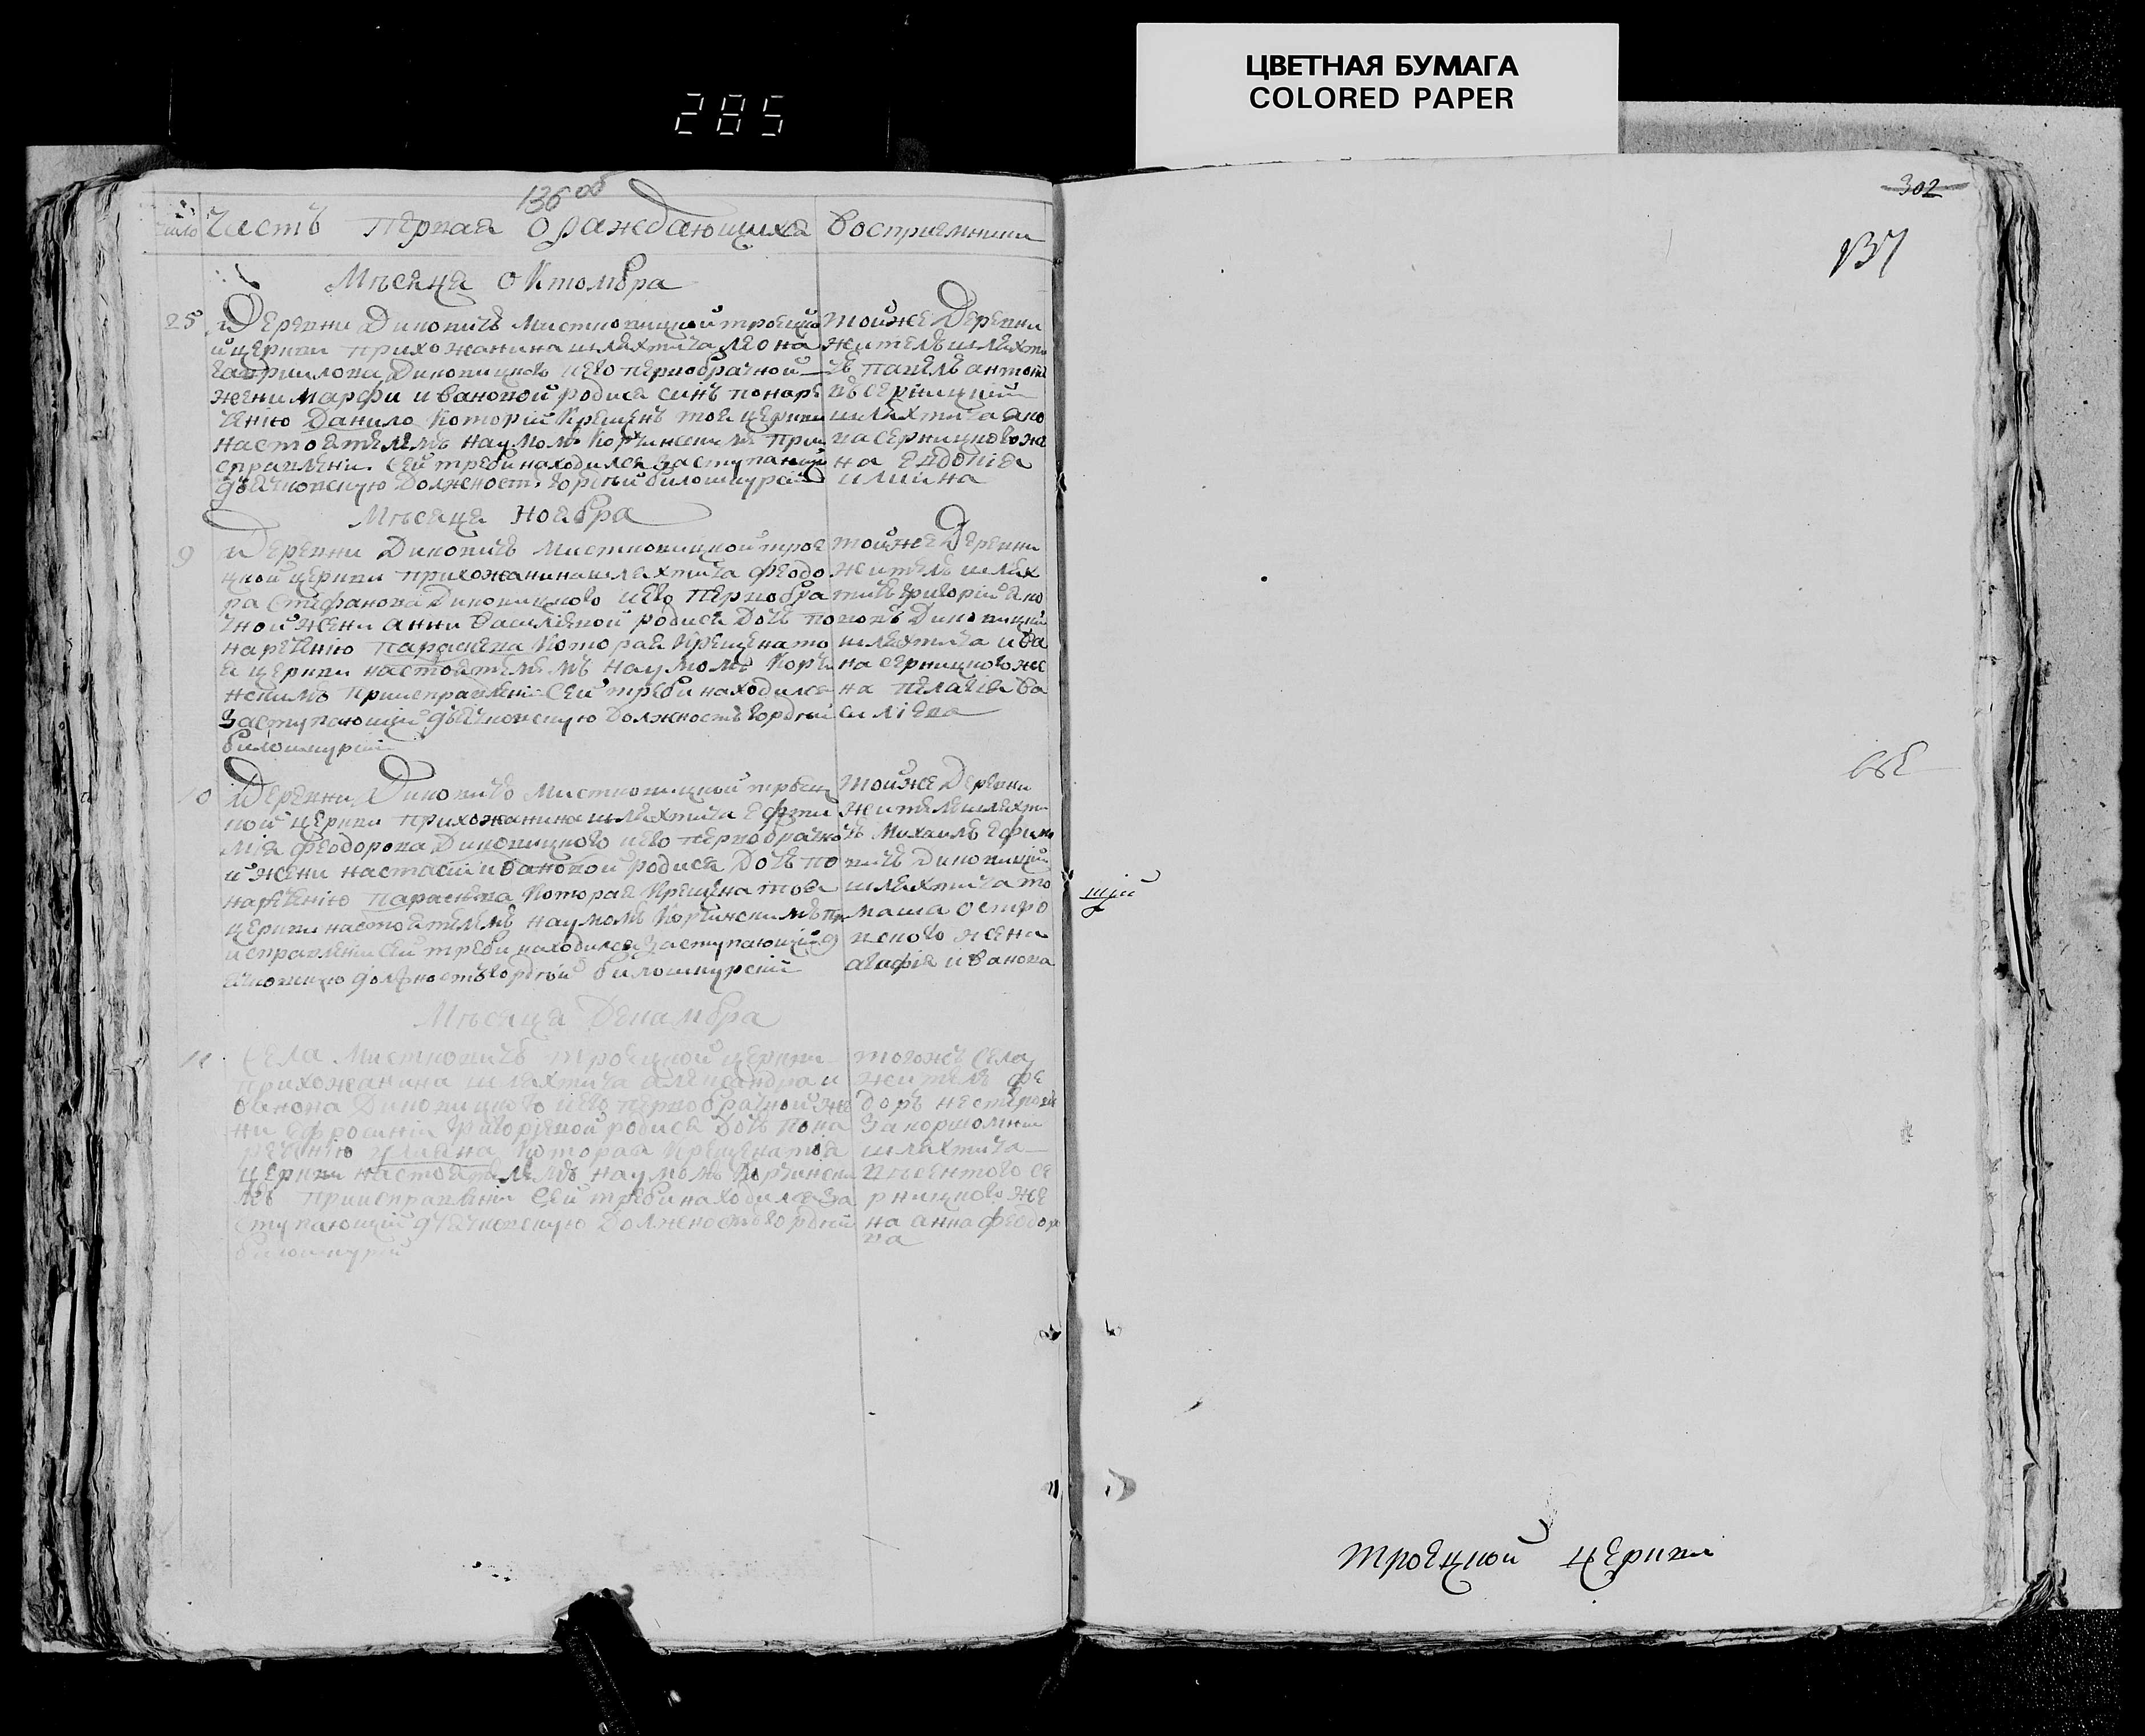 ЦВЕТНАЯ БУМАГА
COLORED PAPER
285
136 об
302
137
число Часть первая о раждающихся
Восприемники
Месяца октомвра
25 Деревни Диковичъ Мистковицкой троецко
й церкви прихожанина шляхтича леона
гавриилова Диковицкого и его первобрачной
жени марфи ивановой родися синъ по наре
чению Данило которій крещенъ тоя церкви
настоятелемъ наумомъ корчинскимъ при
справлени сей треби находился заступающій
дьячковскую должность гордѣй билошкурскій
тойже Деревни
житель шляхти
чъ павелъ антоно
въ сѣрницкій
шляхтича яко
ва серницкого же
на евдокія
илиина
Месяца ноября
9 Деревни Диковичъ Мистковицкой трое
цкой церкви прихожанина шляхтича феодо
ра Стефанова Диковицкого и его первобра
чной жени анни василиевой родися Дочъ по
наречению параскева которая крещена то
я церкви настоятелемъ наумомъ корчи
нскимъ при исправлении сей треби находился
заступающій дьячковскую должность гордѣй
билошкурскій
тойже Деревни
житель шлях
тичъ григорій яко
вовъ Диковицкій
шляхтича ива
на серницкого же
на пелагія ва
силіева
10 Деревни Диковичъ Мистковицкой троец
кой церкви прихожанина шляхтича ефти
мія феодорова Диковицкого и его первобрачно
й жени настасіи ивановой родися Дочъ по
наречению параскева которая крещена тоея
церкви настоятелемъ наумомъ корчинскимъ пр
исправленіи сей треби находился заступающій д
ячковскую должность гордѣй билошкурскій
тойже Деревни
житель шляхти
чъ михаилъ ефимо
вичъ Диковицкій
шляхтича то
маша остро
вского жена
агафія иванова
щій
Месяца Декамвра
Села Мистковичъ троецкой церкви
прихожанина шляхтича александра и
ванова Диковицкого и его первобрачной же
ни ефросиніи григориевой родися Дочъ по на
речению улияна которая крещена тоя
церкви настоятелемъ наумомъ корчински
мъ при исправлени сей треби находился за
ступающій дьячковскую должность гордѣй
билошкурскій
тогожъ Села
житель фе
доръ
шляхтича
се
рницкого же
на анна феодоро
ва
троецкой церкви